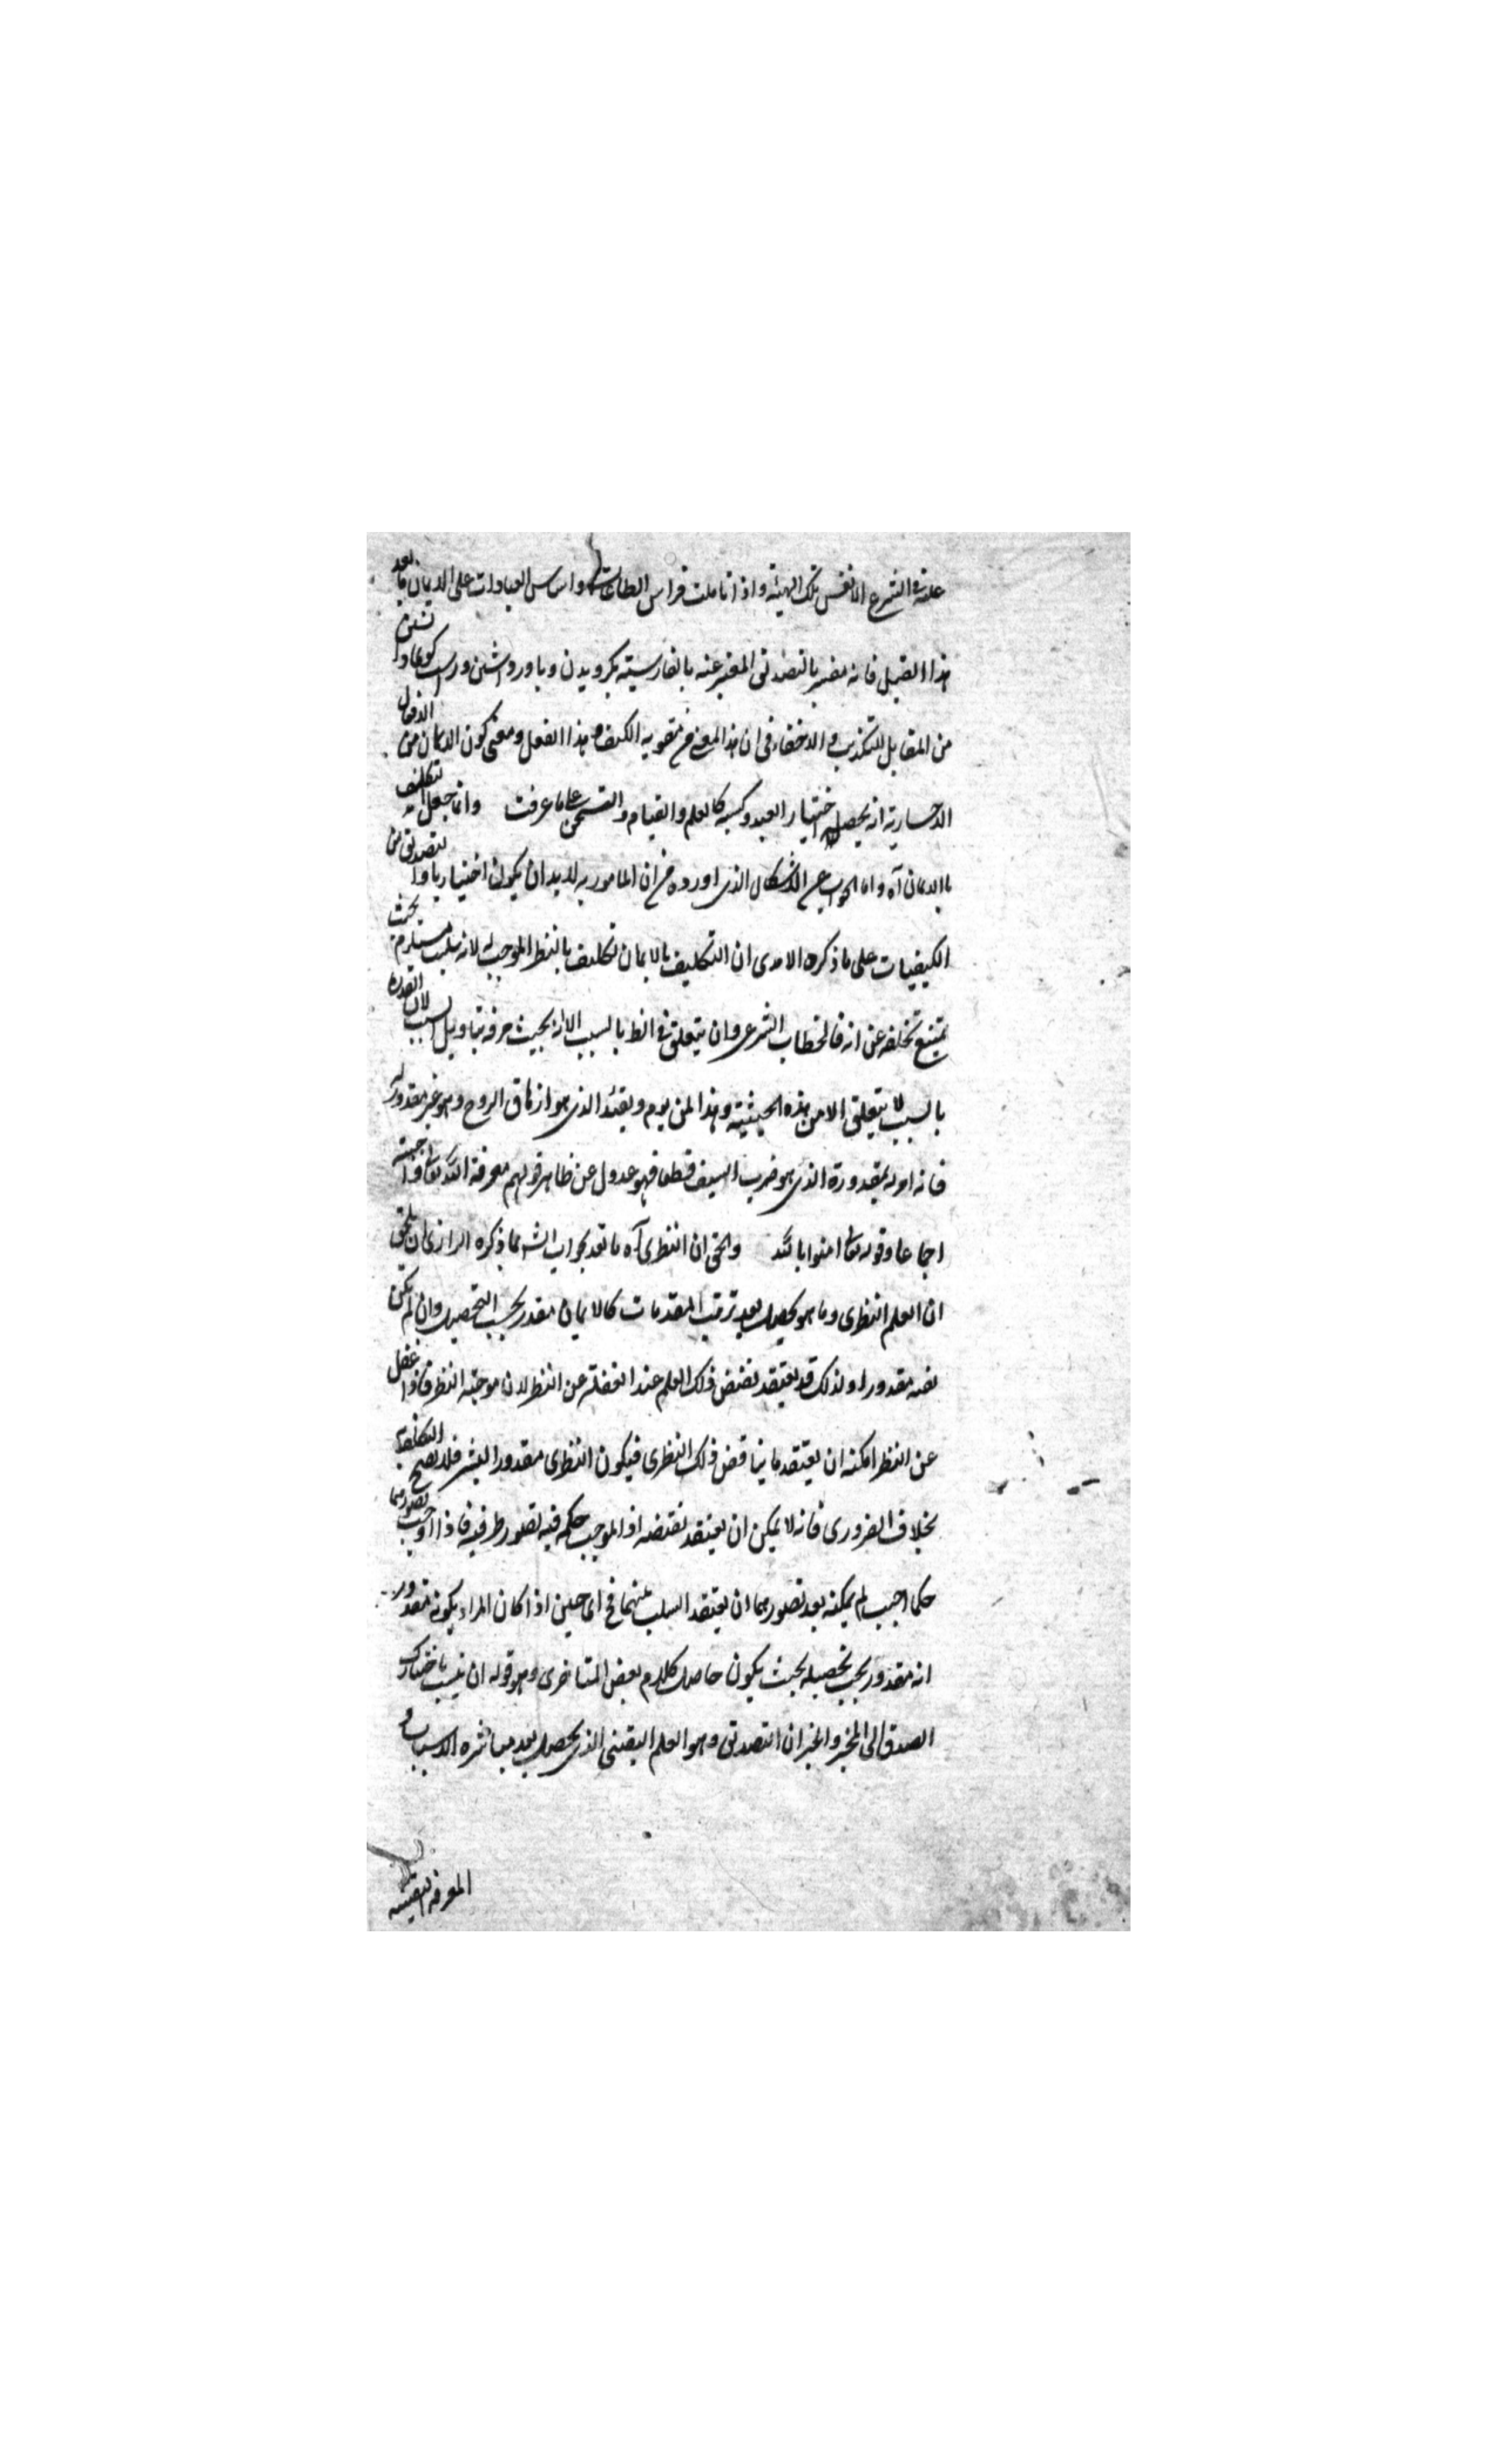 علته في الشرع الا نفس تلك الهيئة واذا تاملت فراس الطاعات واساس العبادات على الايمان بعد
هذا القبيل فانه مفسر بالتصديق المعبر عنه بالفارسية بكرويدن وباور داشتن وراست
من المقابل للتكذيب ولا خفاء في ان هذا المعنى من مقولة الكيف هذا الفعل ومعنى كون الايمان من الافعال
الاختيارية انه يحصل باختيار العبد وكسبه كالعلم والقيام والتسخن على ما عرفت وانما جعل التكليف
بالايمان آه واما الجواب عن الاشكال الذي اورده من ان المامور به لا بد ان يكون اختياريا والتصديق من
الكيفيات على ما ذكره الامدي ان التكليف بالايمان تكليف بالنظر الموجب له لانه سبب مستلزم بحيث
يمتنع تخلفه عن انه فالخطاب الشرعي وان يتعلق في الظ بالسبب الا انه يجب صرفه بتاويل السبب لان القدرة
بالسبب لا يتعلق الا من هذه الحيثية وهذا لمن يوم الذي هو ازهاق الروح وهو غير مقدور له
فانه امر له بمقدورة الذي هو ضرب السيف قطعا فهو عدول عن ظاهر قولهم معرفة الله تعالى واجبة
اجماعا وقوله تعالى امنوا بالله والحق ان النظري آه ما تعد بجواب الش مما ذكره الرازي
ان العلم النظري وما هو يحصل بعد ترتيب المقدمات كالايمان مقدور بحسب التحصيل وان لم يكن
نفسه مقدورا ولذلك قد يعتقد نقيض ذلك العلم عند الغفلة عن النظر لان موجبه النظر فاذا غفل
عن النظر امكنه ان يعتقد ما يناقض ذلك النظري فيكون النظري مقدور البشر فلا يصح التكليف به
بخلاف الضروري فانه لا يمكن ان يعتقد نقيضه اذ الموجب حكمه فيه تصور طرفيه فاذا اوجب تصورهما
حكما اجيب لم يمكنه بعد تصورهما ان يعتقد السلب بينهما فح اي حين اذا كان المراد بكونه مقدورا
انه مقدور بحسب تحصيله بحيث يكون حاصل كلام بعض المتاخري وهو قوله ان ينسب باختيارك
الصدق الى المخبر والخبر ان التصديق وهو العلم اليقيني الذي يحصل بعد مباشرة الاسباب و
المعرفة اليقينية